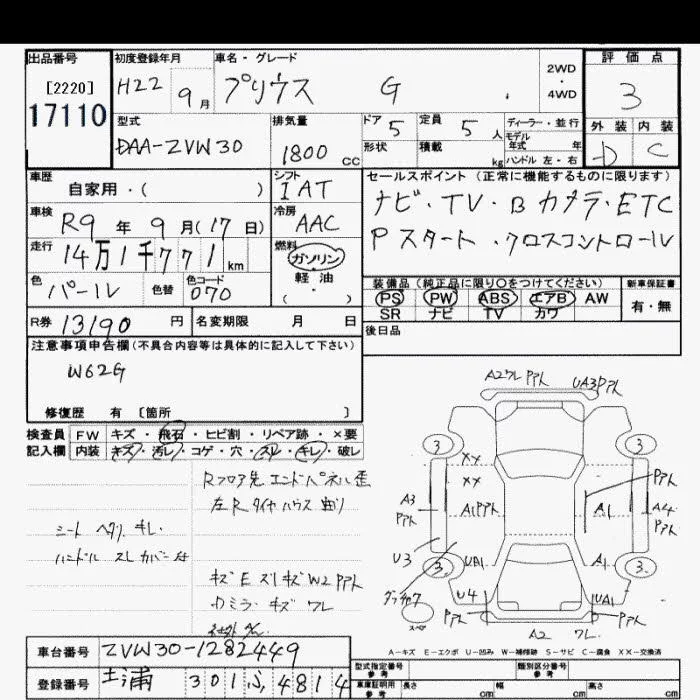 出品番号
[2220]
17110
初度登録年月
H22 9月
車名・グレード
プリウス G
2WD
・
4WD
評価点
3
外装 内装
D C
型式
DAA-ZVW30
排気量
1800 cc
ドア 5
定員 5 人
形状
積載 kg
ディーラー・並行
モデル
年式 年
ハンドル 左・右
車歴
自家用・( )
シフト
IAT
車検
R9 年 9 月(17日)
冷房
AAC
走行
14万1千771 km
燃料
ガソリン
軽・油
( ・ )
色
パール
色替
色コード
070
セールスポイント (正常に機能するものに限ります)
ナビ・TV・Bカメラ・ETC
Pスタート・クロスコントロール
装備品(純正品に限り○をつけてください)
PS PW ABS エアB AW
SR ナビ TV カワ
新車保証書
有・無
後日品
R券 13190 円
名変期限 月 日
注意事項申告欄(不具合内容等は具体的に記入して下さい)
W62G
修復歴 有 〔箇所 〕
検査員
記入欄
FW キズ・飛石・ヒビ割・リペア跡・×要
内装 キズ・汚レ・コゲ・穴・スレ・キレ・破レ
Rフロア先 エンドパネル歪
左R タイヤハウス 曲り
シート ヘタリ キレ
ハンドル スレ カバー付
キズ E ズレキズ W2 PPト
カミラ キズ ワレ
A2ワレ PPト
UA3PPト
3
3
××
××
A1PPト
A3
PPト
PPト
A1
A4
PPト
U3
UA1
A1
3
3
U4
UA1
PPト
PPト
スペア
A2 ワレ
A-キズ E-エクボ U-凹み W-補修跡 S-サビ C-腐食 ××-交換済
車台番号
ZVW30-1282449
登録番号
土浦 301 ふ 4814
型式指定番号
参考
類別区分番号
参考
車庫証明用
参考
長さ cm
幅 cm
高さ cm